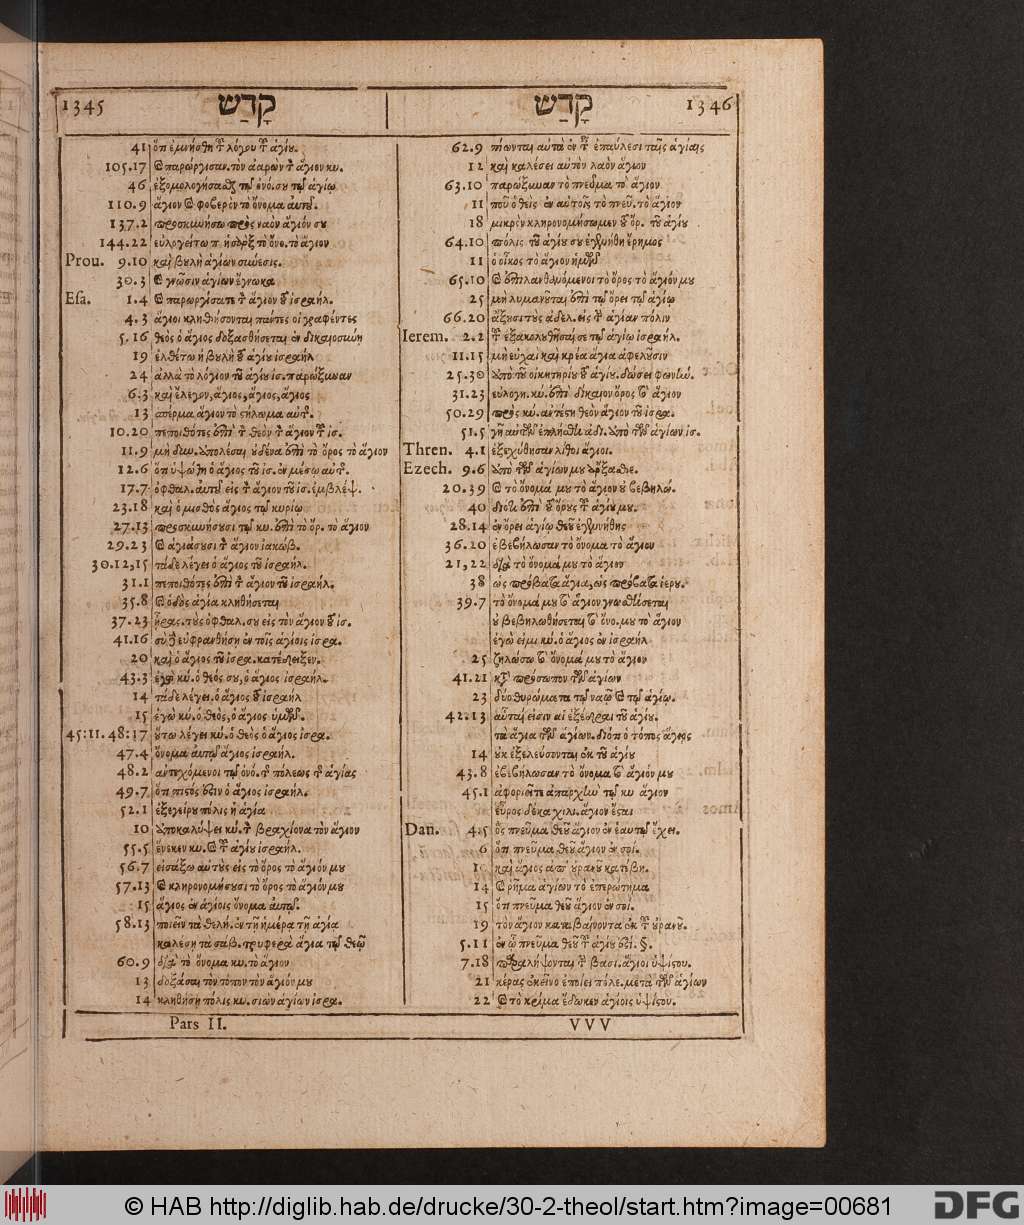 1345 קָדַשׁ
41 ὅτι ἐμνήσθη τοῦ λόγου τοῦ ἁγίου.
105.17 καὶ παρώργισαν. τὸν ἀαρὼν τὸν ἅγιον κυ.
46 ἐξομολογήσασθαι τῷ ὀνό. σου τῷ ἁγίῳ
110.9 ἅγιον καὶ φοβερὸν τὸ ὄνομα αὐτοῦ.
137.2 προσκυνήσω πρὸς ναὸν ἅγιόν σου
144.22 εὐλογείτω π. ἡ σὰρξ τὸ ὄνο. τὸ ἅγιον
Prou. 9.10 καὶ βουλὴ ἁγίων σύνεσις.
30.3 καὶ γνῶσιν ἁγίων ἔγνωκα
Esa. 1.4 καὶ παρωργίσατε τὸν ἅγιον τοῦ ἰσραήλ.
4.3 ἅγιοι κληθήσονται πάντες οἱ γραφέντες
5.16 θεὸς ὁ ἅγιος δοξασθήσεται ἐν δικαιοσύνῃ
19 ἐλθέτω ἡ βουλὴ τοῦ ἁγίου ἰσραὴλ
24 ἀλλὰ τὸ λόγιον τοῦ ἁγίου ἰσ. παρώξυναν
6.3 καὶ ἔλεγον, ἅγιος, ἅγιος, ἅγιος
13 σπέρμα ἅγιον τὸ στήλωμα αὐτῆς.
10.20 πεποιθότες ἐπὶ τὸν θεὸν τὸν ἅγιον τοῦ ἰσ.
11.9 μὴ δύν. ἀπολέσαι οὐδένα ἐπὶ τὸ ὄρος τὸ ἅγιον
12.6 ὅτι ὑψώθη ὁ ἅγιος τοῦ ἰσ. ἐν μέσῳ αὐτῆς.
17.7 ὀφθαλ. αὐτοῦ εἰς τὸν ἅγιον τοῦ ἰσ. ἐμβλέψ.
23.18 καὶ ὁ μισθὸς ἅγιος τῷ κυρίῳ
27.13 προσκυνήσουσι τῷ κυ. ἐπὶ τὸ ὄρ. τὸ ἅγιον
29.23 καὶ ἁγιάσουσι τὸν ἅγιον ἰακώβ.
30.12,15 τάδε λέγει ὁ ἅγιος τοῦ ἰσραήλ.
31.1 πεποιθότες ἐπὶ τὸν ἅγιον τοῦ ἰσραήλ.
35.8 καὶ ὁδὸς ἁγία κληθήσεται
37.23 ἦρας. τοὺς ὀφθαλ. σου εἰς τὸν ἅγιον τοῦ ἰσ.
41.16 σὺ δὲ εὐφρανθήσῃ ἐν τοῖς ἁγίοις ἰσρα.
20 καὶ ὁ ἅγιος τοῦ ἰσρα. κατέδειξεν.
43.3 ἐγὼ κύ. ὁ θεός σου, ὁ ἅγιος ἰσραήλ.
14 τάδε λέγει. ὁ ἅγιος τοῦ ἰσραὴλ
15 ἐγὼ κύ. ὁ θεὸς, ὁ ἅγιος ὑμῶν.
45:11. 48:17 οὕτω λέγει κύ. ὁ θεὸς ὁ ἅγιος ἰσρα.
47.4 ὄνομα αὐτῷ ἅγιος ἰσραήλ.
48.2 ἀντεχόμενοι τῷ ὀνό. τῆς πόλεως τῆς ἁγίας
49.7 ὅτι πιστός ἐστιν ὁ ἅγιος ἰσραήλ.
52.1 ἐξεγείρου πόλις ἡ ἁγία
10 ἀποκαλύψει κύ. τὸν βραχίονα τὸν ἅγιον
55.5 ἕνεκεν κυ. καὶ τοῦ ἁγίου ἰσραήλ.
56.7 εἰσάξω αὐτοὺς εἰς τὸ ὄρος τὸ ἅγιόν μου
57.13 καὶ κληρονομήσουσι τὸ ὄρος τὸ ἅγιόν μου
15 ἅγιος ἐν ἁγίοις ὄνομα αὐτῷ.
58.13 ποιεῖν τὰ θελή. ἐν τῇ ἡμέρᾳ τῇ ἁγίᾳ
καλέσῃ τὰ σάβ. τρυφερὰ ἅγια τῷ θεῷ
60.9 διὰ τὸ ὄνομα κυ. τὸ ἅγιον
13 δοξάσαι τὸν τόπον τὸν ἅγιόν μου
14 κληθήσῃ πόλις κυ. σιὼν ἁγίου ἰσρα.
Pars II.
קָדַשׁ 1346
62.9 πίονται αὐτὰ ἐν ταῖς ἐπαύλεσι ταῖς ἁγίαις
12 καὶ καλέσει αὐτὸν λαὸν ἅγιον
63.10 παρώξυναν τὸ πνεῦμα τὸ ἅγιον
11 ποῦ ὁ θεὶς ἐν αὐτοῖς τὸ πνεῦ. τὸ ἅγιον
18 μικρὸν κληρονομήσωμεν τοῦ ὄρ. τοῦ ἁγίου
64.10 πόλις τοῦ ἁγίου σου ἐγενήθη ἔρημος
11 ὁ οἶκος τὸ ἅγιον ἡμῶν
65.10 καὶ ἐπιλανθανόμενοι τὸ ὄρος τὸ ἅγιόν μου
25 μὴ λυμανοῦνται ἐπὶ τῷ ὄρει τῷ ἁγίῳ
66.20 ἄξουσι τοὺς ἀδελ. εἰς τὴν ἁγίαν πόλιν
Ierem. 2.2 τοῦ ἐξακολουθῆσαί σε τῷ ἁγίῳ ἰσραήλ.
11.15 μὴ εὐχαὶ καὶ κρέα ἅγια ἀφελοῦσιν
25.30 ἀπὸ τοῦ οἰκητηρίου τοῦ ἁγίου. δώσει φωνήν.
31.23 εὐλογη. κύ. ἐπὶ δίκαιον ὄρος τὸ ἅγιον
50.29 πρὸς κύ. ἀντέστη θεὸν ἅγιον τοῦ ἰσρα.
51.5 γῆ αὐτῶν ἐπλήσθη ἀδι. ἀπὸ τῶν ἁγίων ἰσ.
Thren. 4.1 ἐξεχύθησαν λίθοι ἅγιοι.
Ezech. 9.6 ἀπὸ τῶν ἁγίων μου ἄρξασθε.
20.39 καὶ τὸ ὄνομά μου τὸ ἅγιον οὐ βεβηλώ.
40 διότι ἐπὶ τοῦ ὄρους τοῦ ἁγίου μου.
28.14 ἐν ὄρει ἁγίῳ θεοῦ ἐγενήθης
36.20 ἐβεβήλωσαν τὸ ὄνομα τὸ ἅγιον
21,22 διὰ τὸ ὄνομά μου τὸ ἅγιον
38 ὡς πρόβατα ἅγια, ὡς πρόβατα ἱερου.
39.7 τὸ ὄνομά μου τὸ ἅγιον γνωσθήσεται
οὐ βεβηλωθήσεται τὸ ὄνο. μου τὸ ἅγιον
ἐγώ εἰμι κύ. ὁ ἅγιος ἐν ἰσραὴλ
25 ζηλώσω τὸ ὄνομά μου τὸ ἅγιον
41.21 κατὰ πρόσωπον τῶν ἁγίων
23 δύο θυρώματα τῷ ναῷ καὶ τῷ ἁγίῳ.
42.13 αὗταί εἰσιν αἱ ἐξέδραι τοῦ ἁγίου.
τὰ ἅγια τῶν ἁγίων. διότι ὁ τόπος ἅγιος
14 οὐκ ἐξελεύσονται ἐκ τοῦ ἁγίου
43.8 ἐβεβήλωσαν τὸ ὄνομα τὸ ἅγιόν μου
45.1 ἀφοριεῖτε ἀπαρχὴν τῷ κυ ἅγιον
εὖρος δέκα χιλι. ἅγιον ἔσται
Dan. 4.5 ὃς πνεῦμα θεοῦ ἅγιον ἐν ἑαυτῷ ἔχει.
6 ὅτι πνεῦμα θεοῦ ἅγιον ἐν σοί.
10 καὶ ἅγιος ἀπ' οὐρανοῦ κατέβη.
14 καὶ ῥῆμα ἁγίων τὸ ἐπερώτημα
15 ὅτι πνεῦμα θεοῦ ἅγιον ἐν σοί.
19 τὸν ἅγιον καταβαίνοντα ἐκ τοῦ οὐρανοῦ.
5.11 ἐν ᾧ πνεῦμα θεοῦ τοῦ ἁγίου ἐστί. §.
7.18 παραλήψονται τὴν βασι. ἅγιοι ὑψίστου.
21 κέρας ἐκεῖνο ἐποίει πόλε. μετὰ τῶν ἁγίων
22 καὶ τὸ κρίμα ἔδωκεν ἁγίοις ὑψίστου.
VVV
© HAB http://diglib.hab.de/drucke/30-2-theol/start.htm?image=00681
DFG